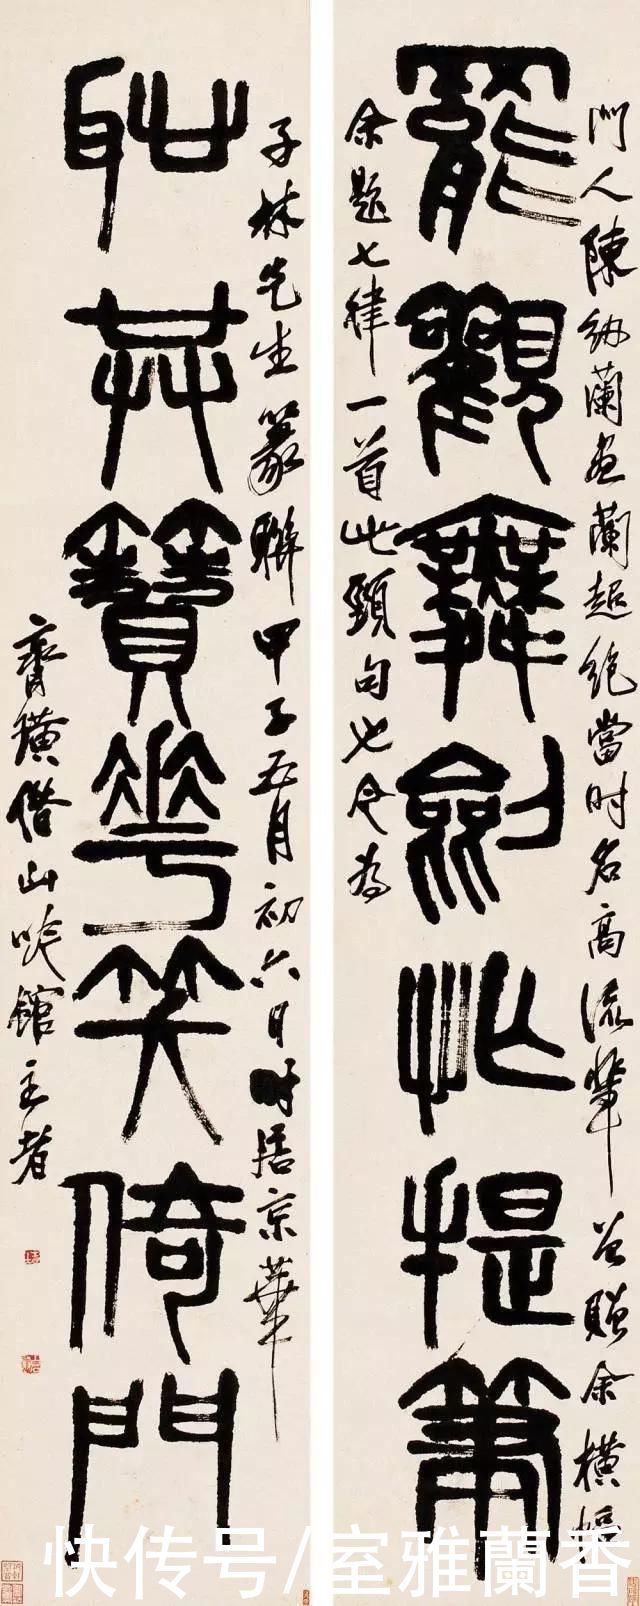 罷觀舞劍忙提筆
門人陳紉蘭畫蘭超絕當时名高流輩曾贈余橫幅
余題七律一首此頸句也今為
恥共簪花笑倚門
子林先生篆聯甲子五月初六日时居京華
齊璜借山吟館主者
快传号/室雅蘭香